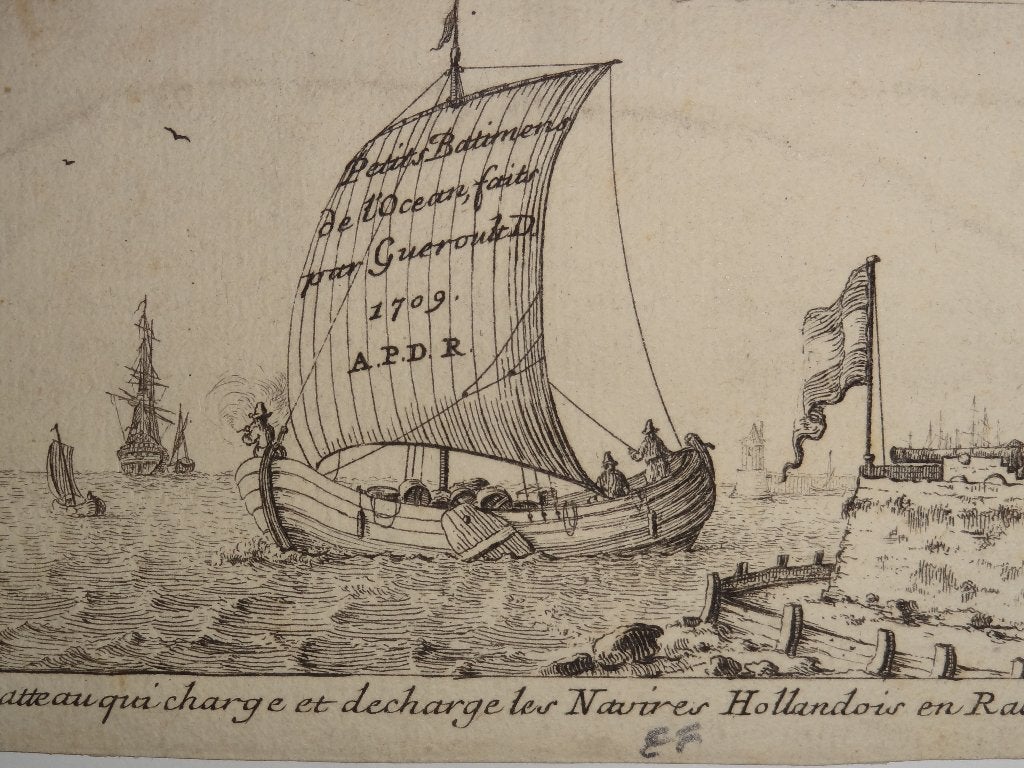 Petits Batimens
de l'Ocean, faits
par Gueroult D.
1709.
A.P.D.R.
atteau qui charge et decharge les Navires Hollandois en Ra
EF